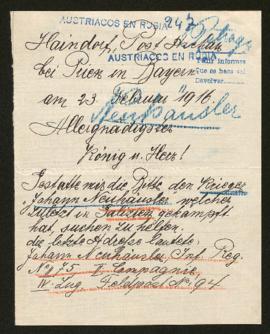 AUSTRIACOS EN RUSIA
247
Haindorf, Post
AUSTRIACOS EN RUSIA
bei Prien in Bayern
Pedir informes
Que se haga así
Devolver
am 23. Februar 1916.
Neuhäusler
Allergnädigster
König u. Herr!
Gestatte mir die Bitte, den Krieger
Johann Neuhäusler, welcher
zuletzt in Galizien gekämpft
hat, suchen zu helfen.
die letzte Adresse lautete:
Johann Neuhäusler, Inf. Reg.
No 75 Compagnie
IV. Zug. Feldpost No 94.